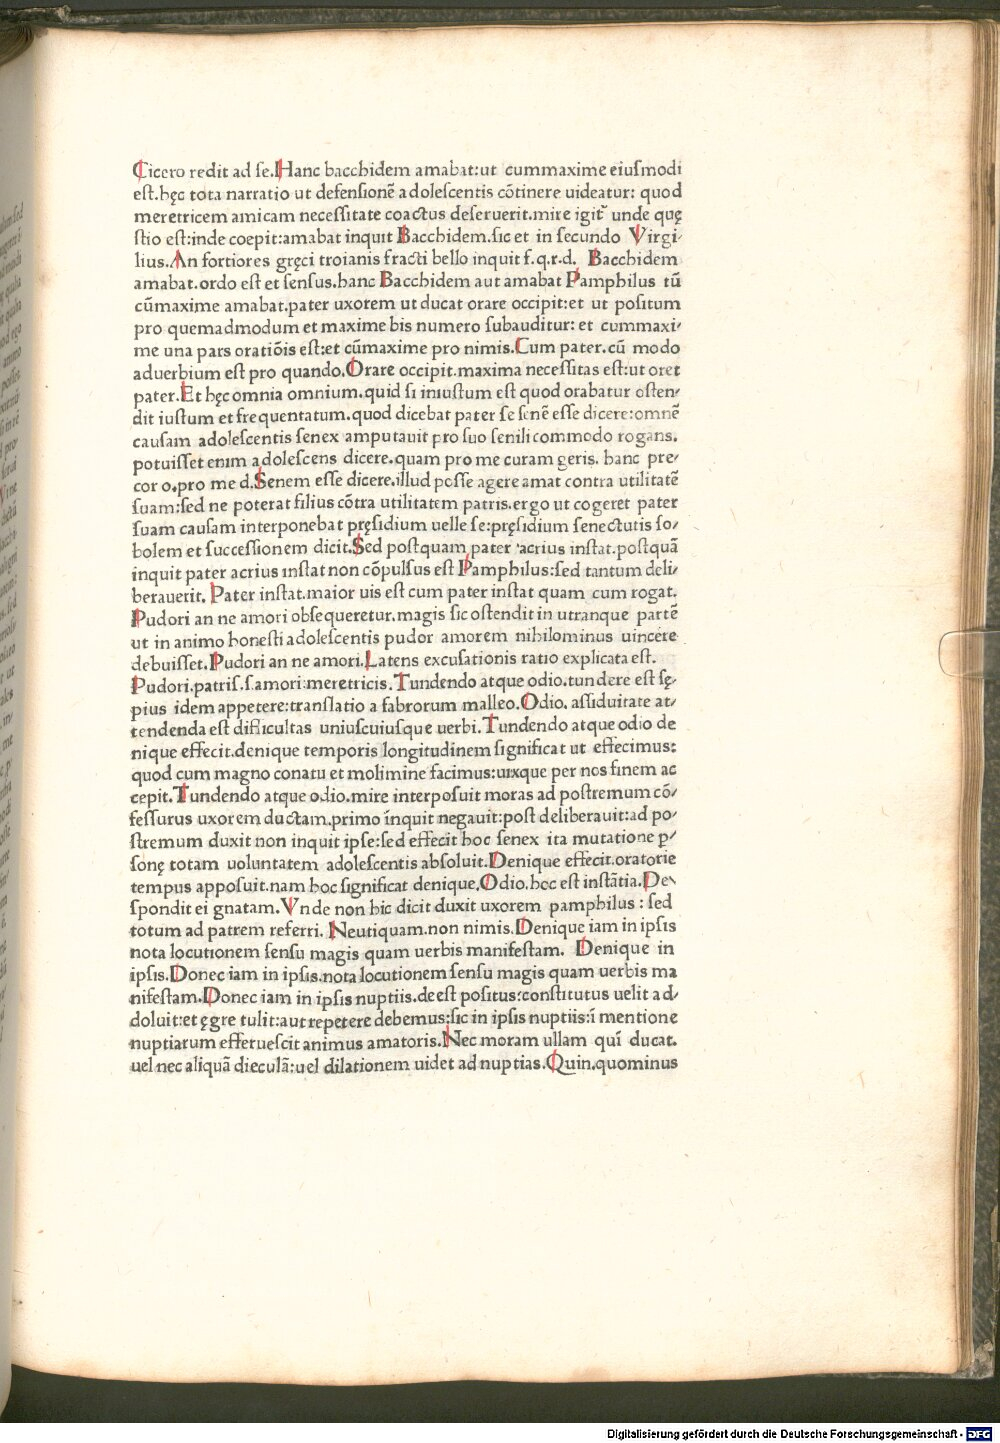 Cicero redit ad ſe.Hanc bacchidem amabat:ut cummaxime eiuſmodi
eſt.hęc tota narratio ut defenſionē adoleſcentis cōtinere uideatur: quod
meretricem amicam neceſſitate coactus deſeruerit.mire igit᷑ unde quę
ſtio eſt:inde coepit:amabat inquit Bacchidem.ſic et in ſecundo Virgi-
lius.An fortiores gręci troianis fracti bello inquit f.q.r.d. Bacchidem
amabat.ordo eſt et ſenſus.hanc Bacchidem aut amabat Pamphilus tū
cūmaxime amabat.pater uxorem ut ducat orare occipit:et ut poſitum
pro quemadmodum et maxime bis numero ſubauditur: et cummaxi-
me una pars oratiōis eſt:et cūmaxime pro nimis.Cum pater.cū modo
aduerbium eſt pro quando.Orare occipit.maxima neceſſitas eſt:ut oret
pater.Et hęc omnia omnium.quid ſi iniuſtum eſt quod orabatur oſten-
dit iuſtum et frequentatum.quod dicebat pater ſe ſenē eſſe dicere:omnē
cauſam adoleſcentis ſenex amputauit pro ſuo ſenili commodo rogans.
potuiſſet enim adoleſcens dicere.quam pro me curam geris. hanc pre-
cor o.pro me d.Senem eſſe dicere.illud poſſe agere amat contra utilitatē
ſuam:ſed ne poterat filius cōtra utilitatem patris.ergo ut cogeret pater
ſuam cauſam interponebat pręſidium uelle ſe:pręſidium ſenectutis ſo-
bolem et ſucceſſionem dicit.Sed poſtquam pater acrius inſtat.poſtquā
inquit pater acrius inſtat non cōpulſus eſt Pamphilus:ſed tantum deli-
berauerit. Pater inſtat.maior uis eſt cum pater inſtat quam cum rogat.
Pudori an ne amori obſequeretur.magis ſic oſtendit in utranque partē
ut in animo honeſti adoleſcentis pudor amorem nihilominus uincere
debuiſſet.Pudori an ne amori.Latens excuſationis ratio explicata eſt.
Pudori.patriſ.ſ.amori:meretricis.Tundendo atque odio.tundere eſt ſę-
pius idem appetere:tranſlatio a fabrorum malleo.Odio. aſſiduitate at-
tendenda eſt difficultas uniuſcuiuſque uerbi.Tundendo atque odio de
nique effecit.denique temporis longitudinem ſignificat ut effecimus:
quod cum magno conatu et molimine facimus:uixque per nos finem ac
cepit.Tundendo atque odio.mire interpoſuit moras ad poſtremum cō-
feſſurus uxorem ductam.primo inquit negauit:poſt deliberauit:ad po-
ſtremum duxit non inquit ipſe:ſed effecit hoc ſenex ita mutatione p-
ſonę totam uoluntatem adoleſcentis abſoluit.Denique effecit.oratorie
tempus appoſuit.nam hoc ſignificat denique.Odio.hoc eſt inſtātia.De-
ſpondit ei gnatam.Vnde non hic dicit duxit uxorem pamphilus : ſed
totum ad patrem referri. Neutiquam.non nimis.Denique iam in ipſis
nota locutionem ſenſu magis quam uerbis manifeſtam. Denique in
ipſis.Donec iam in ipſis.nota locutionem ſenſu magis quam uerbis ma
nifeſtam.Donec iam in ipſis nuptiis.deeſt poſitus:conſtitutus uelit ad-
doluit:et ęgre tulit:aut repetere debemus:ſic in ipſis nuptiis:ī mentione
nuptiarum efferueſcit animus amatoris.Nec moram ullam quī ducat.
uel nec aliquā dieculā:uel dilationem uidet ad nuptias.Quin.quominus
Digitalisierung gefördert durch die Deutsche Forschungsgemeinschaft - DFG